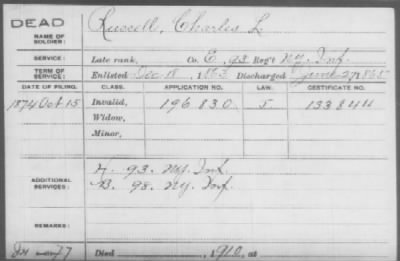 DEAD
NAME OF SOLDIER: Russell, Charles L
SERVICE: Late rank, Co. E, 93 Reg't N.Y. Inf.
TERM OF SERVICE: Enlisted Dec 18, 1863 Discharged June 27 1865
DATE OF FILING. CLASS. APPLICATION NO. LAW. CERTIFICATE NO.
1874 Oct 15 Invalid, 196 830
Widow,
Minor,
ADDITIONAL SERVICES: H. 93. N.Y. Inf.
B. 98. N.Y. Inf.
REMARKS:
Died 1910, at